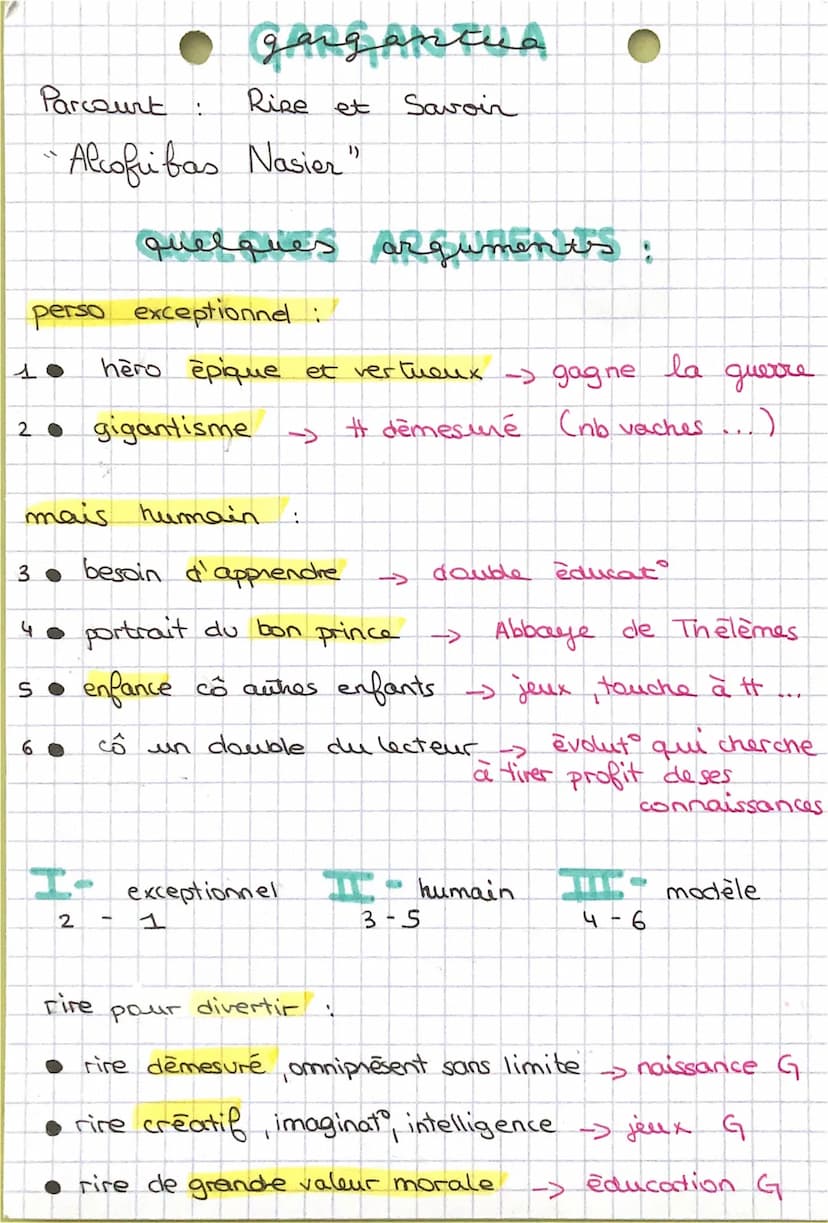 gargantua
Parcourt : Rire et Savoir
"Alcofribas Nasier"
quelques arguments :
perso exceptionnel :
1 ● hēro ēpique et vertueux → gagne la guerre
2 ● gigantisme → # dēmesuré (nb vaches ...)
mais humain :
3 ● besoin d'apprendre → double ēducat°
4 ● portrait du bon prince → Abbaye de Thēlèmes
5 ● enfance cô autres enfants → jeux, touche à tt ...
6 ● cô un double du lecteur → ēvolut° qui cherche
à tirer profit de ses
connaissances
I - exceptionnel II - humain III - modèle
2 - 1 3 - 5 4 - 6
rire pour divertir :
● rire dēmesuré, omniprēsent sans limite → naissance G
● rire crēatif, imaginat°, intelligence → jeux G
● rire de grande valeur morale → ēducation G